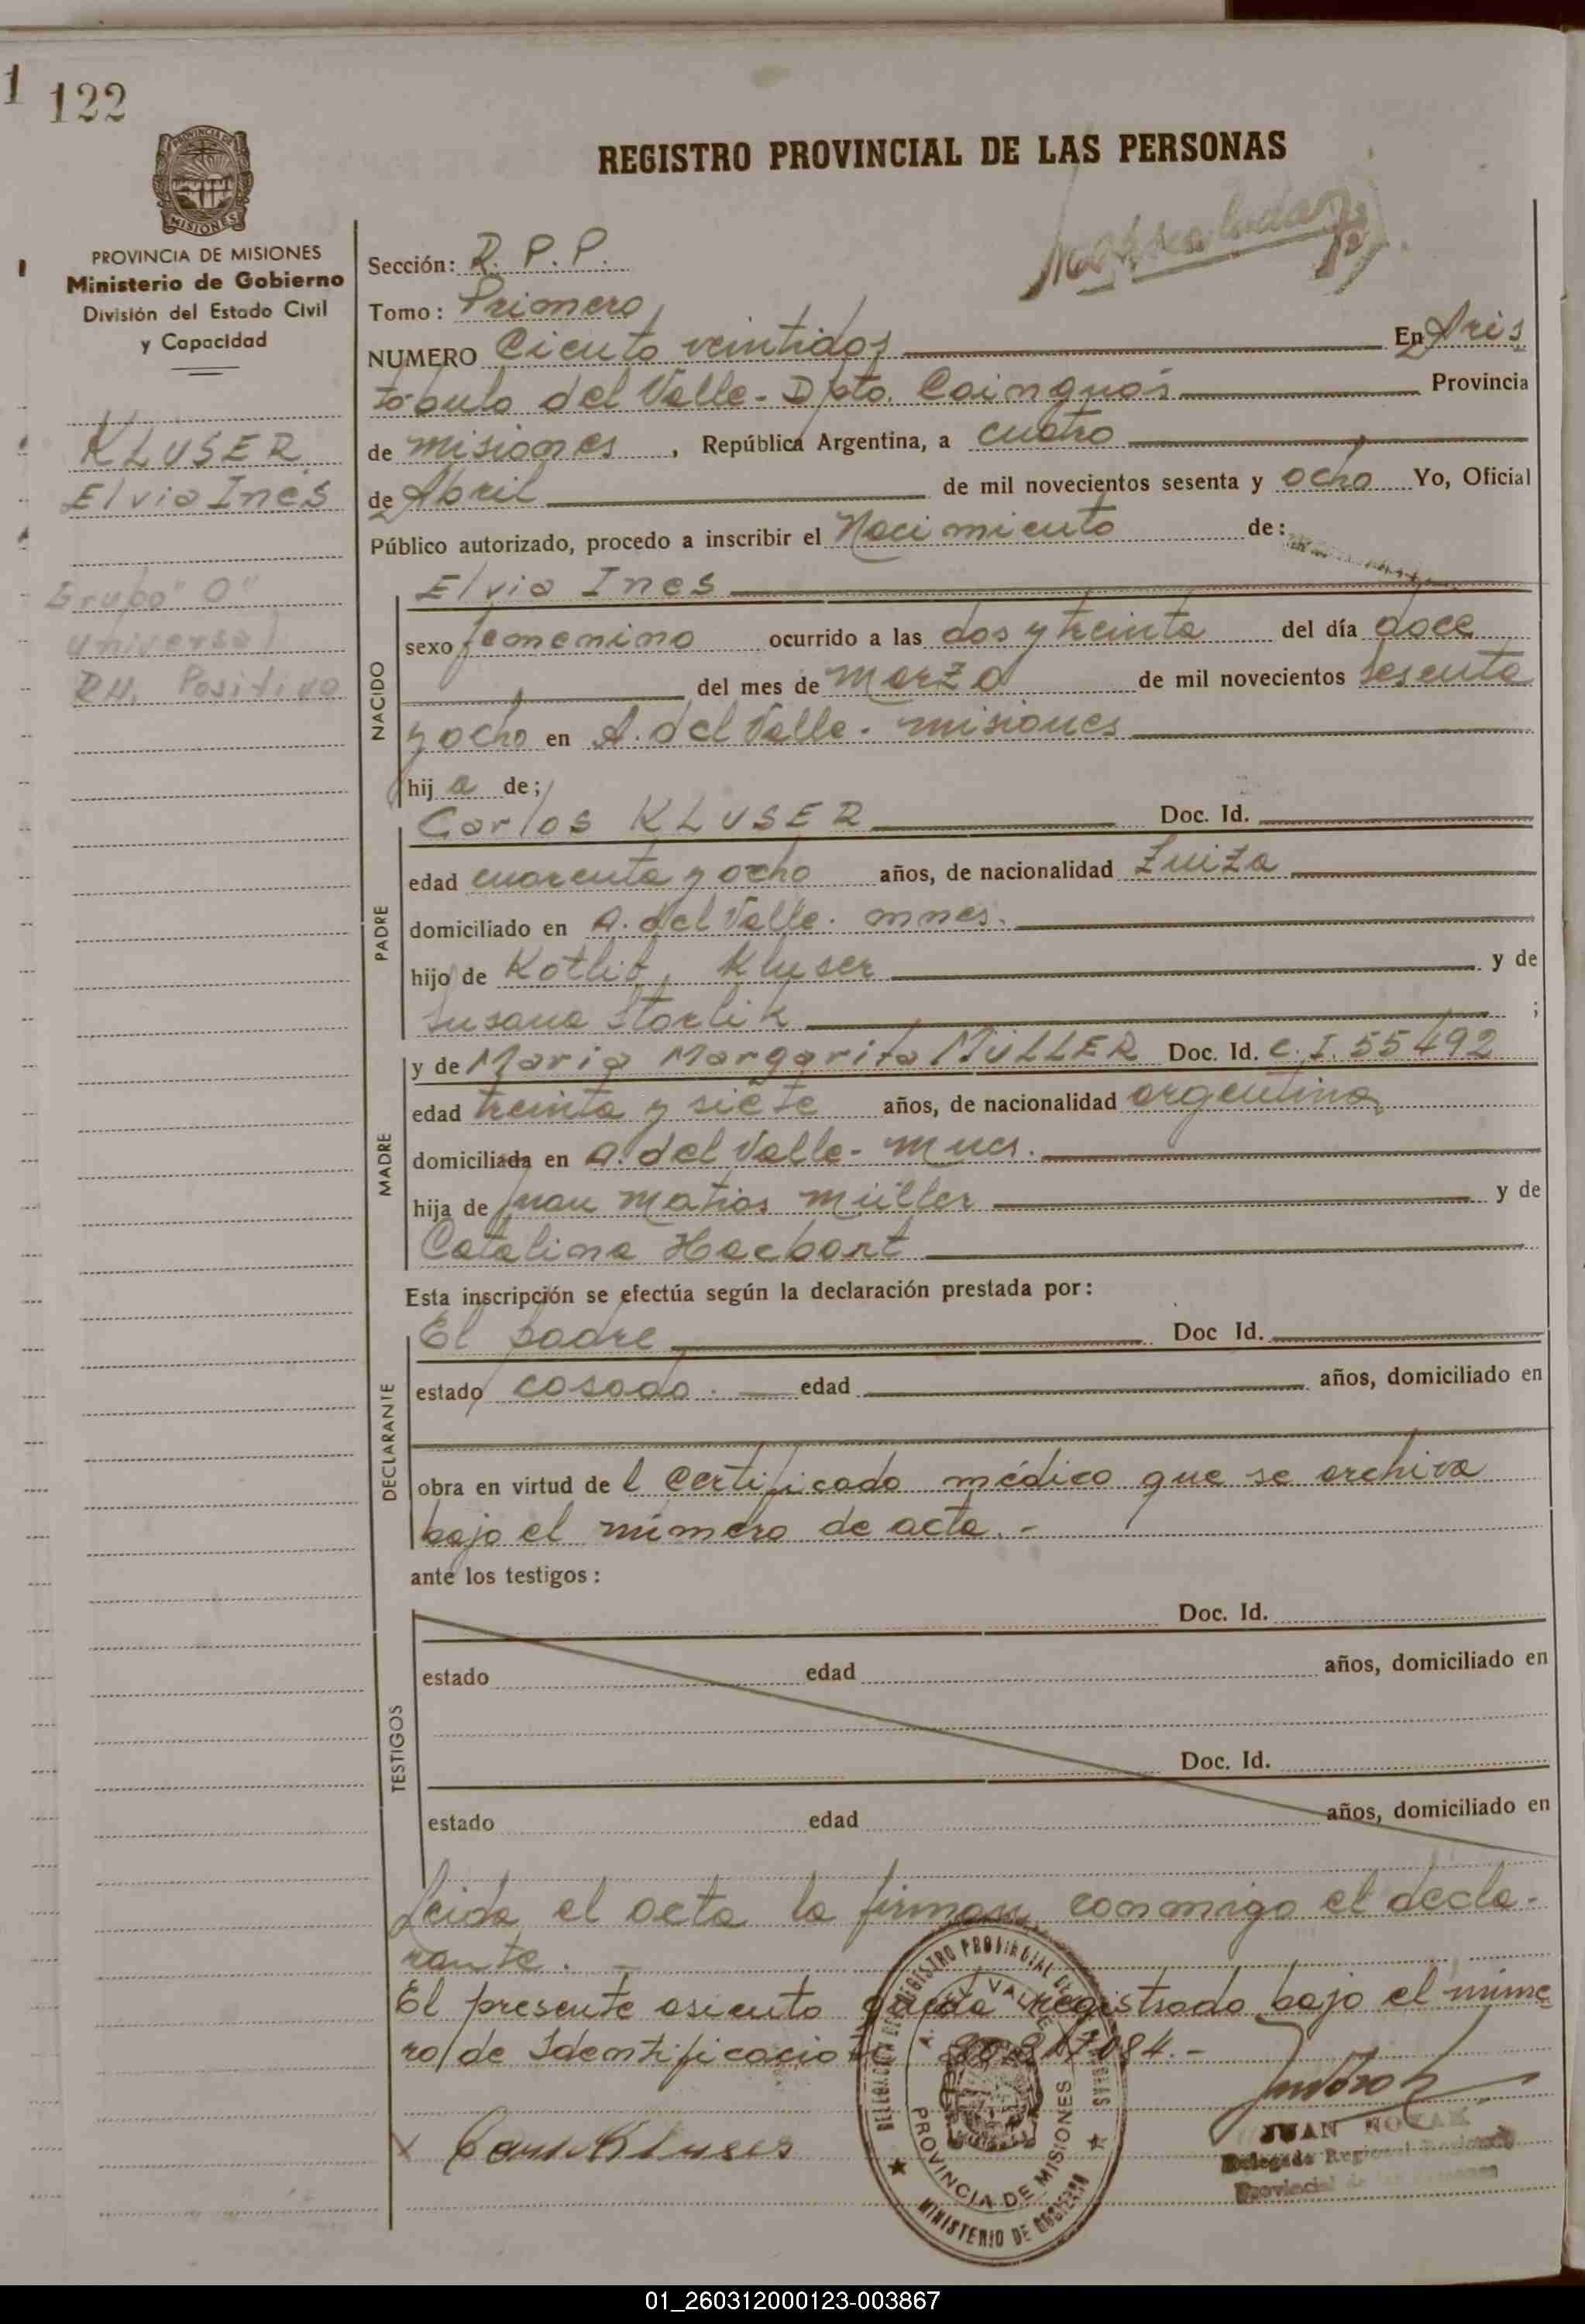 1 122
REGISTRO PROVINCIAL DE LAS PERSONAS
PROVINCIA DE MISIONES
Ministerio de Gobierno
División del Estado Civil
y Capacidad
KLUSER
Elvia Inés
Grupo "O"
universal
RH. Positivo
Sección: R. P. P.
Tomo: Primero
NUMERO Ciento veintidos En Aris
tóbulo del Valle - Dpto. Cainguás Provincia
de misiones, República Argentina, a cuatro
de Abril de mil novecientos sesenta y ocho Yo, Oficial
Público autorizado, procedo a inscribir el Nacimiento de:
NACIDO
Elvia Ines
sexo femenino ocurrido a las dos y treinta del día doce
del mes de marzo de mil novecientos sesenta
y ocho en A. del Valle - misiones
hij a de;
PADRE
Carlos KLUSER Doc. Id.
edad cuarenta y ocho años, de nacionalidad Zuiza
domiciliado en A. del Valle. mnes.
hijo de Kotlib, Kluser y de
Susana Starlik ;
MADRE
y de Maria Margarita MÜLLER Doc. Id. C. I. 55492
edad treinta y siete años, de nacionalidad argentina
domiciliada en A. del Valle - mnes.
hija de Juan Matias Müller y de
Catalina Hacbart
Esta inscripción se efectúa según la declaración prestada por:
DECLARANTE
El padre Doc Id.
estado casado. edad años, domiciliado en
obra en virtud de l certificado médico que se archiva
bajo el número de acta. -
ante los testigos:
TESTIGOS
Doc. Id.
estado edad años, domiciliado en
Doc. Id.
estado edad años, domiciliado en
Leida el acta la firman conmigo el decla-
rante. -
El presente asiento queda registrado bajo el núme
ro de Identificación 084. -
REGISTRO PROVINCIAL DE LAS
A. DEL VALLE
PROVINCIA DE MISIONES
MINISTERIO DE GOBIERNO
x Carlos Kluser
JUAN NOVAK
Delegado Regional
Provincial de las Personas
01_260312000123-003867